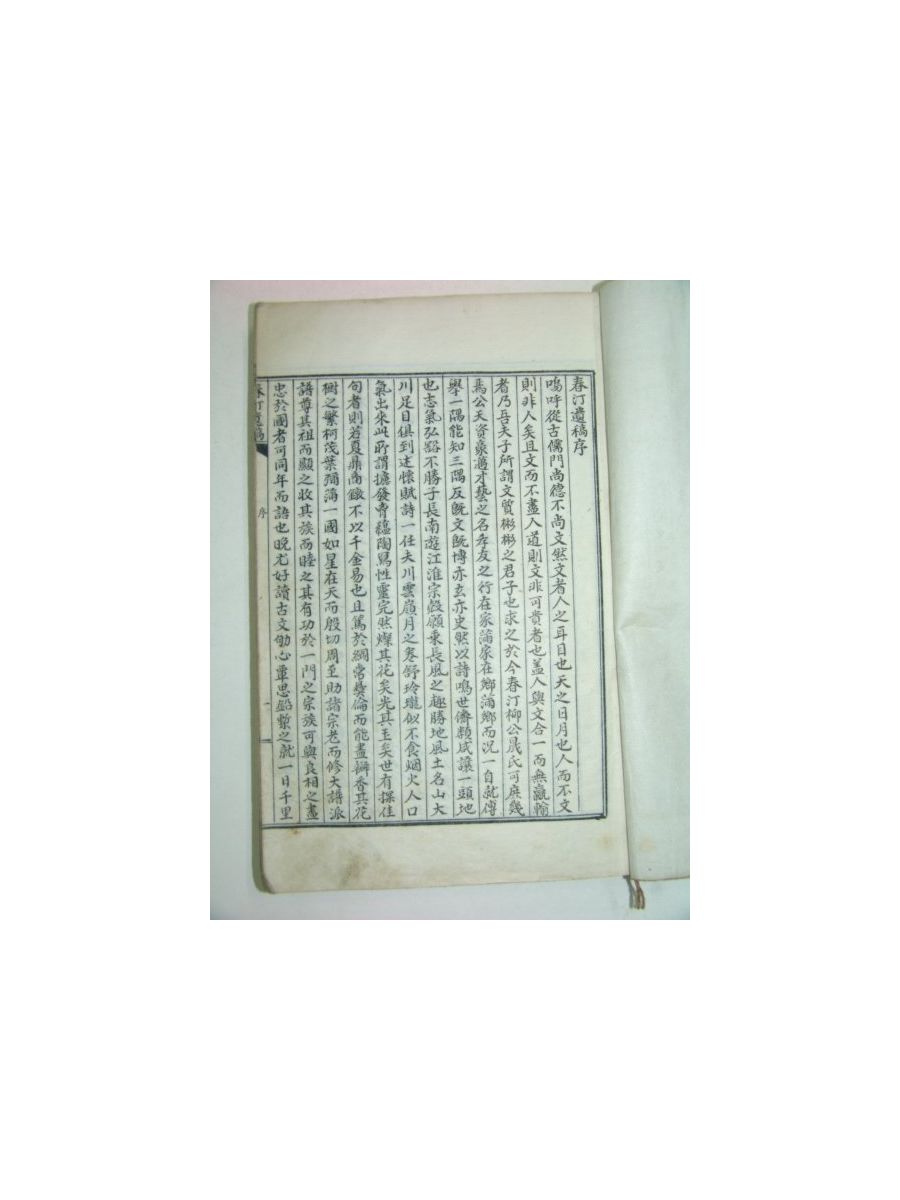 春汀遺稿序
嗚呼從古儒門尚德不尚文然文者人之耳目也天之日月也人而不文
則非人矣且文而不盡人道則文非可貴者也盖人與文合一而無贏輸
者乃吾夫子所謂文質彬彬之君子也求之於今春汀柳公晟氏可庶幾
焉公天資豪邁才藝之名孝友之行在家滿家在鄉滿鄉而况一自就傅
擧一隅能知三隅反旣文旣博亦玄亦史然以詩鳴世儕類咸讓一頭地
也志氣弘豁不勝子長南遊江淮宗慤願乘長風之趣勝地風土名山大
川足目俱到述懷賦詩一任夫川雲嶺月之寒舒玲瓏似不食烟火人口
氣出來此所謂攄發胷蘊陶寫性靈完然燦其花矣光其玉矣世有探佳
句者則若夏鼎啇敦不以千金易也且篤於綱常彝倫而能盡瓣香其花
樹之繁柯茂葉彌滿一國如星在天而殷切周至助諸宗老而修大譜派
譜尊其祖而顯之收其族而睦之其有功於一門之宗族可與良相之盡
忠於國者可同年而語也晩尤好讀古文劬心覃思鉛槧之就一日千里
春汀遺稿
序
一